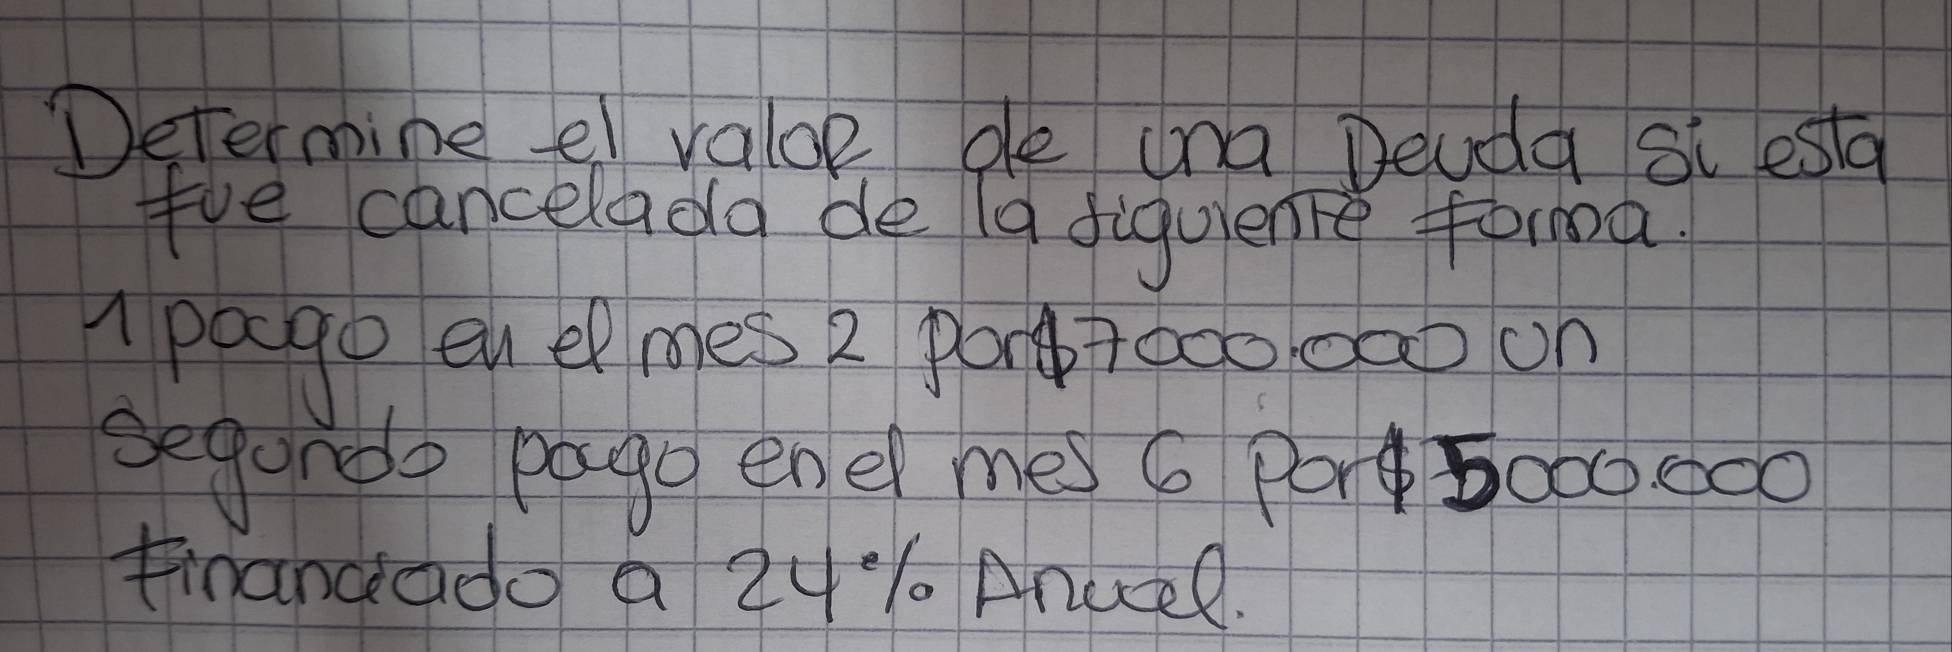 Determine el valor de una Deuda si esta
fue cancelada de la siguiente forma.
1 pago en el mes 2 por $7000.000 un
segundo pago en el mes 6 Por $5000.000
financiado a 24% Anual.